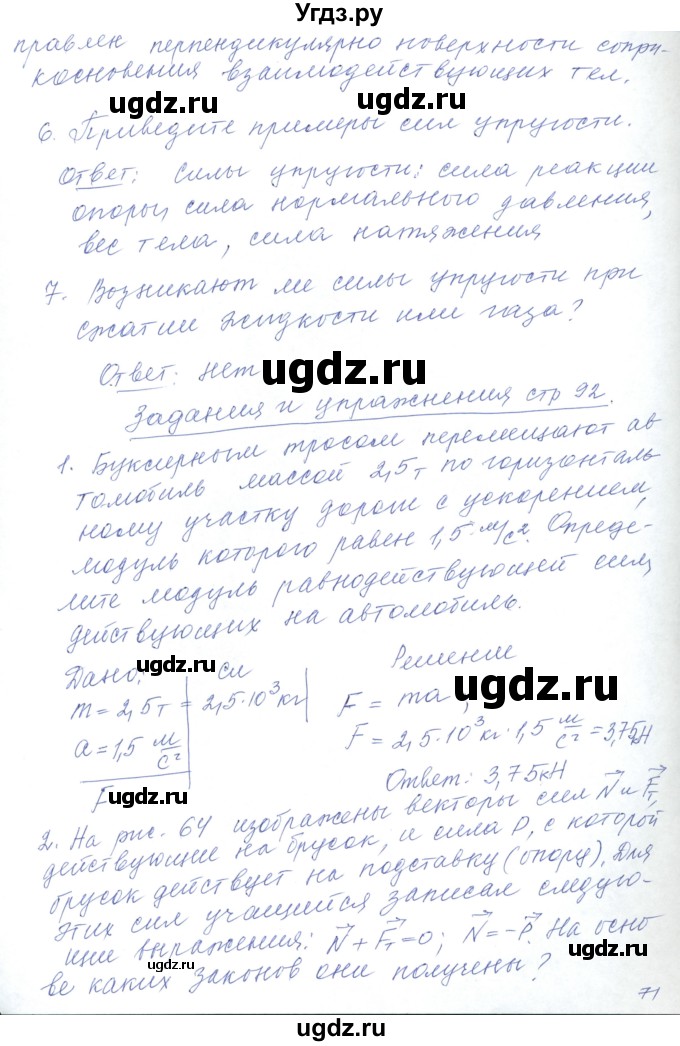 Угдз.ру
правлен перпендикулярно поверхности сопри-
косновения взаимодействующих тел.
ugdz.ru ugdz.ru
6. Приведите примеры сил упругости.
Ответ: Силы упругости: сила реакции
опоры, сила нормального давления,
вес тела, сила натяжения
7. Возникают ли силы упругости при
сжатии жидкости или газа?
Ответ: нет
ugdz.ru
Задания и упражнения стр 92.
1. Буксирным тросом перемещают ав
томобиль массой 2,5т по горизонталь-
ugdz.ru ugdz.ru
ному участку дороги с ускорением,
модуль которого равен 1,5 м/с². Опреде-
лите модуль равнодействующей сил,
действующих на автомобиль.
Дано: СИ Решение
ugdz.ru ugdz.ru
m = 2,5т = 2,5·10³кг F = ma,
a = 1,5 м/с² F = 2,5·10³кг·1,5 м/с² = 3,75кН
F Ответ: 3,75кН
ugdz.ru
2. На рис. 64 изображены векторы сил N и Fт,
действующие на брусок, и сила P, с которой
брусок действует на подставку (опору). Для
ugdz.ru ugdz.ru
этих сил учащийся записал следую-
щие выражения: N + Fт = 0; N = -P. На осно
ве каких законов они получены?
ugdz.ru
71
ugdz.ru